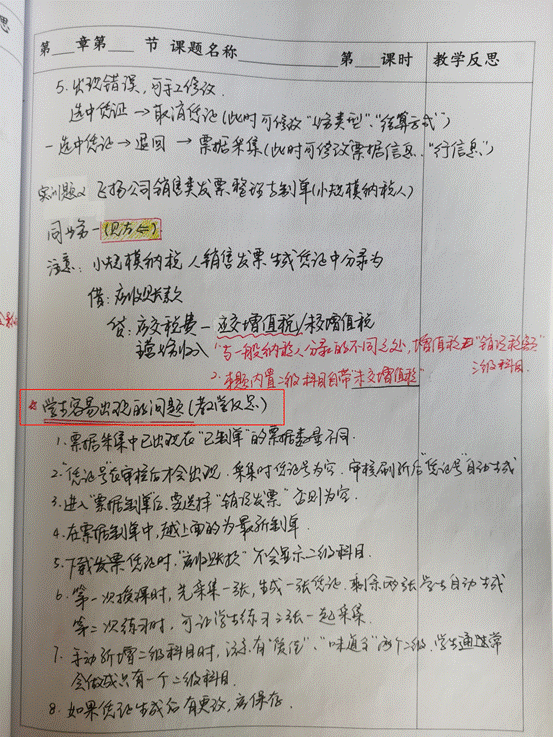 第___章第___ 节 课题名称___________ 第___课时 教学反思
5. 出现错误，可手工修改.
选中凭证 → 取消凭证(此时可修改"业务类型"、"结算方式")
-选中凭证 → 退回 → 票据采集(此时可修改票据信息、"行信息")
实训题2 飞扬公司销售类发票整理与制单(小规模纳税人)
同步第一(见左⇐)
注意: 小规模纳税人销售发票生成凭证中分录为
借: 应收账款
贷: 应交税费-应交增值税/未交增值税
主营业务收入
"与一般纳税人分录的不同之处, 增值税 "销项税额"
三级科目.
2. 本题内置二级科目自带"未交增值税"
* 学生容易出现的问题(教学反思)
1. 票据采集中已出现在"已制单"的票据数量不同.
2. "凭证号"在审核后才会出现. 采集时凭证号为空. 审核刷新后"凭证号"自动生成
3. 进入"票据制单"后, 要选择"销项发票" 否则为空.
4. 在票据制单中, 越上面的为最新制单.
5. 下载发票凭证时, "应收账款"不会显示二级科目.
6. 第一次授课时, 先采集一张, 生成一张凭证. 剩余两张 学生自动生成
第二次练习时, 可让学生练习三张一起采集.
7. 手动新增二级科目时, 涉及有 、"味道"两个二级. 学生通常
会做成只有一个二级科目.
8. 如果凭证生成后有更改, 应保存.